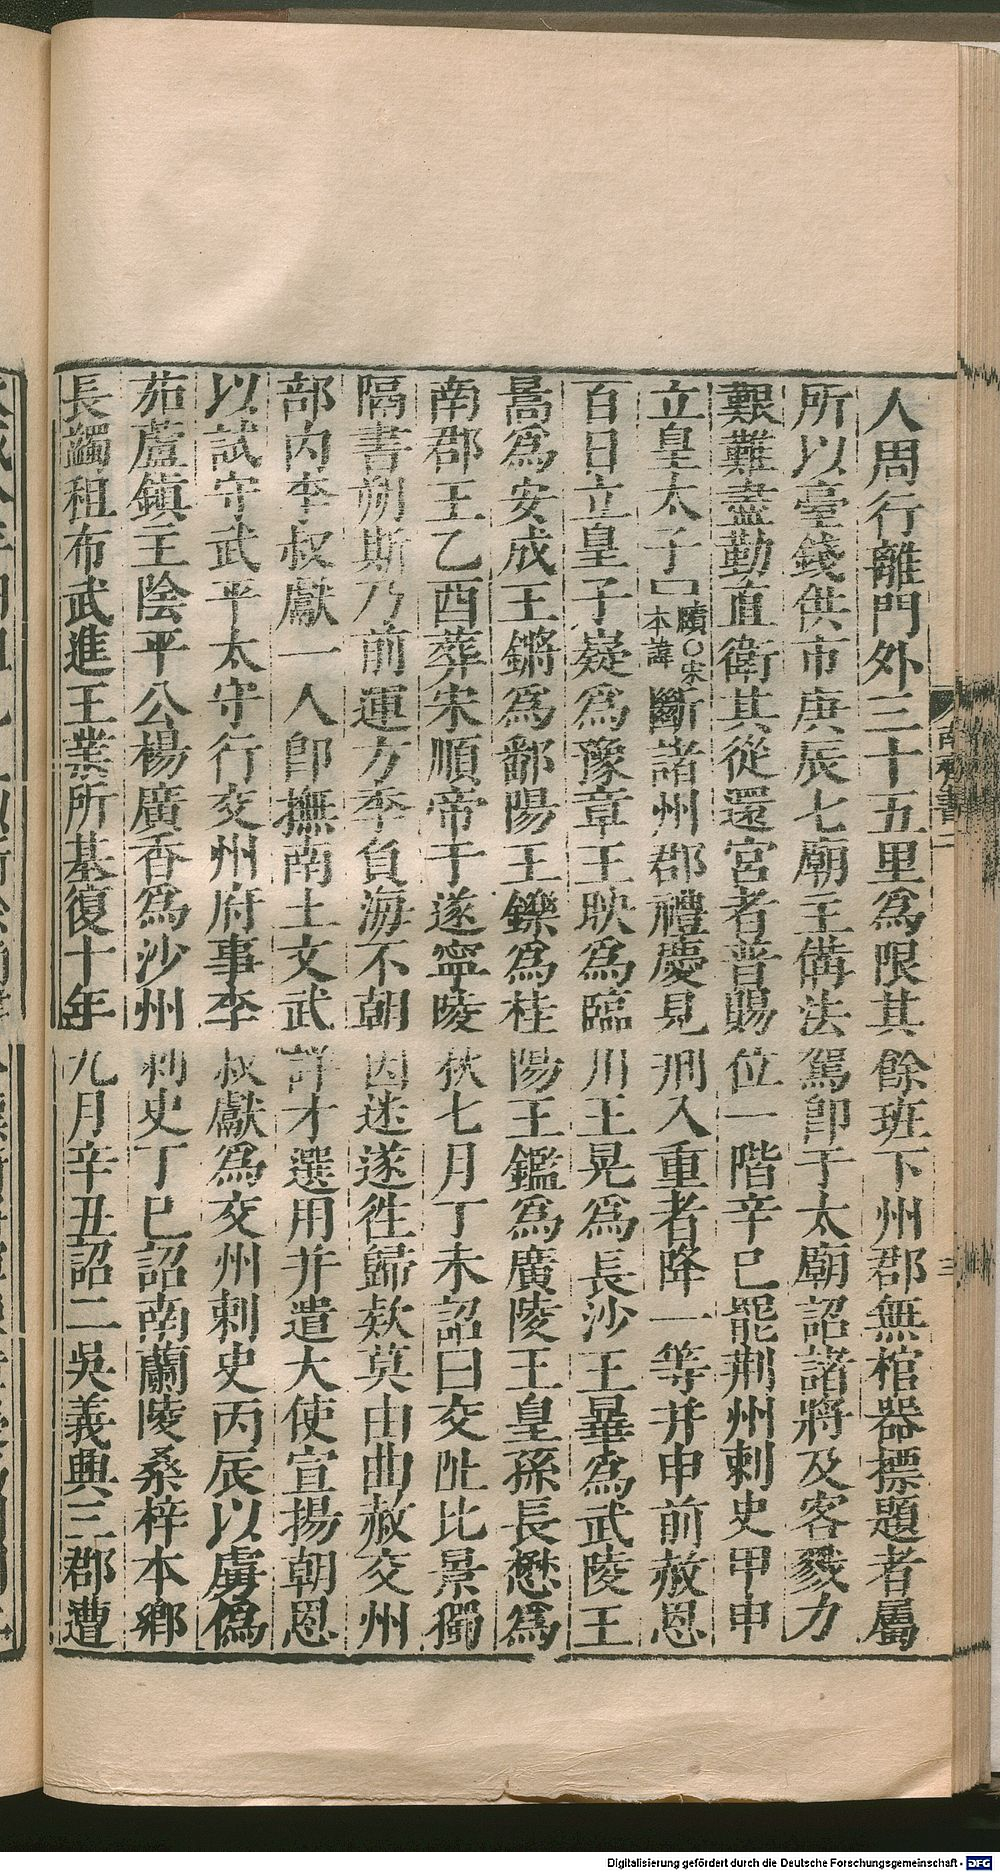 人周行離門外三十五里為限其餘班下州郡無棺器標題者屬
所以臺錢供市庚辰七廟主備法駕即于太廟詔諸將及客戮力
艱難盡勤直衛其從還宮者普賜位一階辛巳罷荆州刺史甲申
立皇太子 賾○宋本諱 斷諸州郡禮慶見刑入重者降一等并申前赦恩
百日立皇子嶷為豫章王映為臨川王晃為長沙王曅為武陵王
暠為安成王鏘為鄱陽王鑠為桂陽王鑑為廣陵王皇孫長懋為
南郡王乙酉葬宋順帝于遂寧陵秋七月丁未詔曰交阯比景獨
隔書朔斯乃前運方季負海不朝因迷遂徃歸款莫由曲赦交州
部內李叔獻一人即撫南土文武詳才選用并遣大使宣揚朝恩
以試守武平太守行交州府事李叔獻為交州刺史丙辰以虜偽
茄蘆鎮主陰平公楊廣香為沙州刺史丁巳詔南蘭陵桑梓本鄉
長蠲租布武進王業所基復十年九月辛丑詔二吳義興三郡遭
南齊書二
三
Digitalisierung gefördert durch die Deutsche Forschungsgemeinschaft - DFG